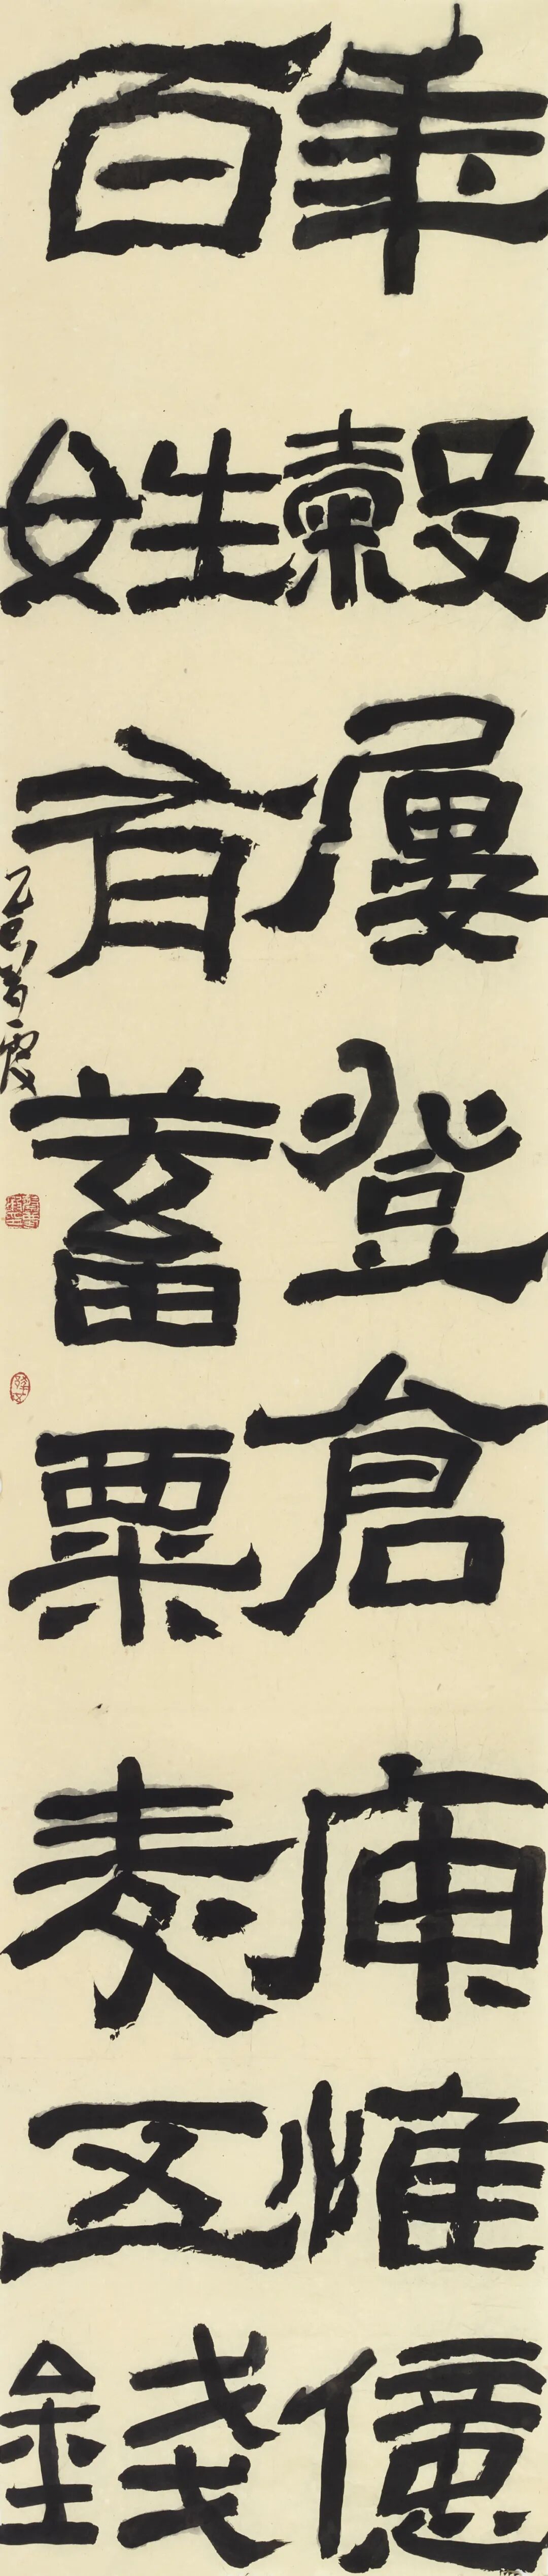 年穀屢登倉庾惟億
百姓有蓄粟麥五錢
乙巳霞